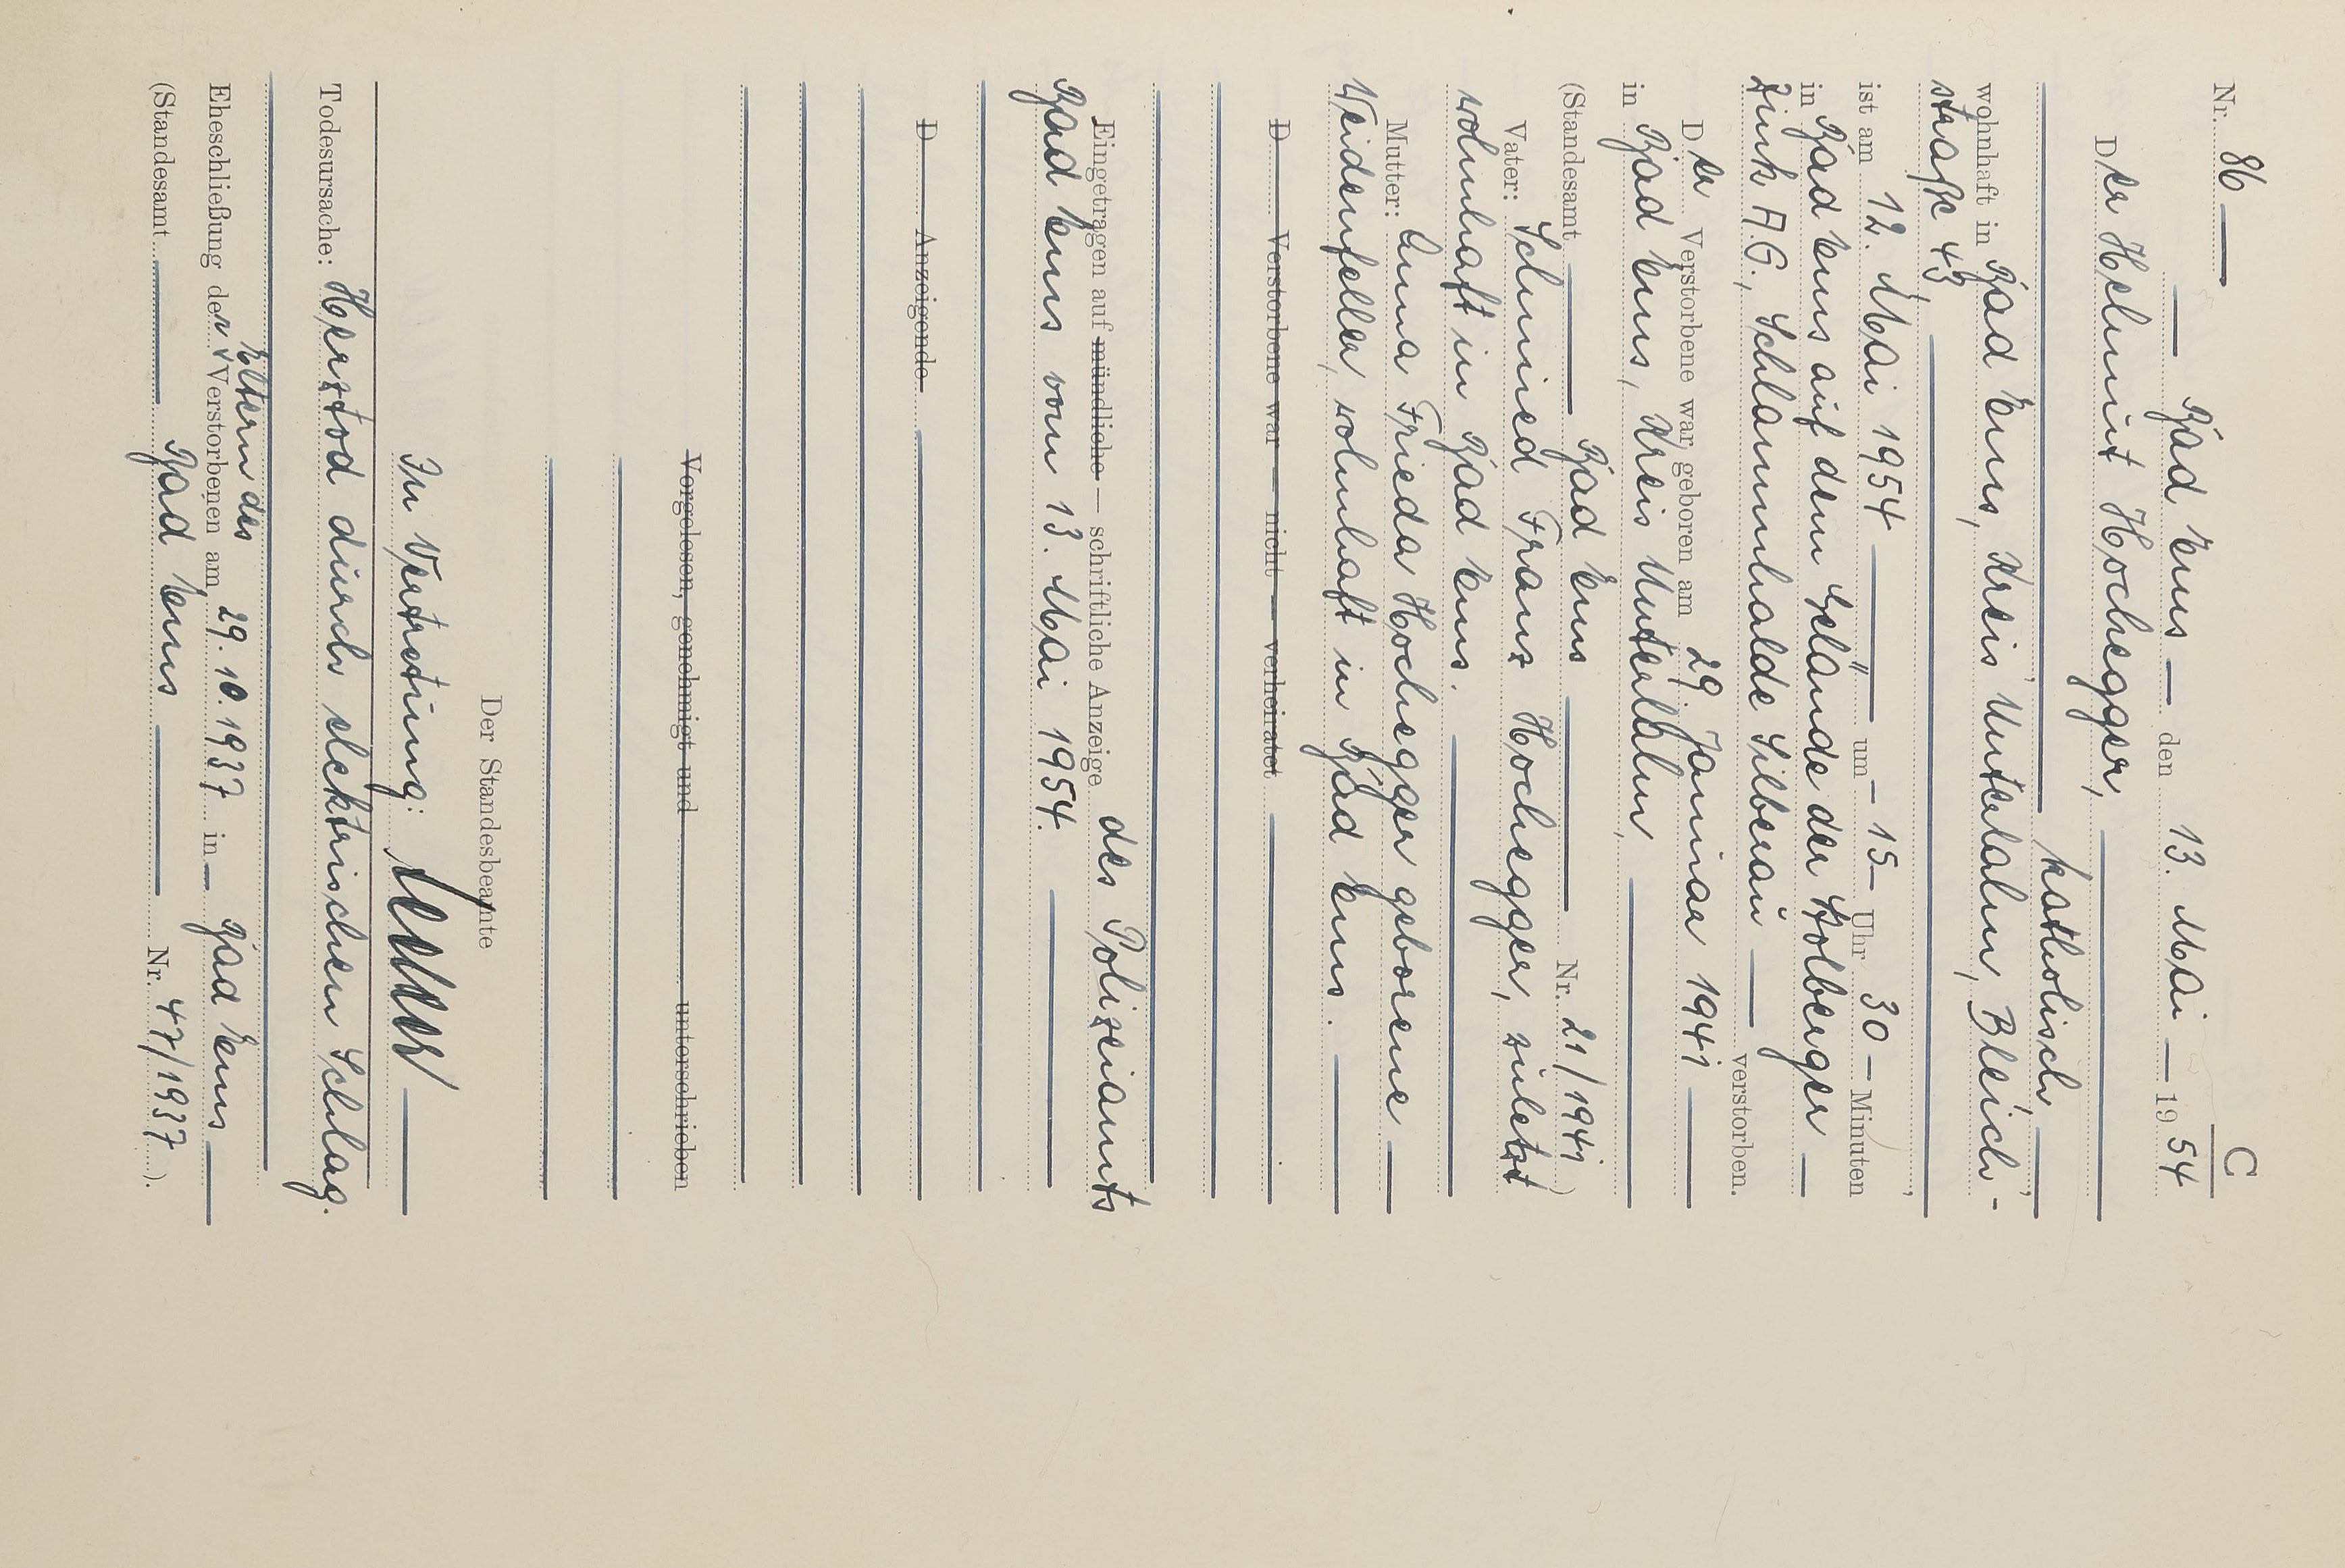 C
Nr. 86
Bad Ems den 13. Mai 1954
Der Helmut Hochegger,
katholisch,
wohnhaft in Bad Ems, Kreis Unterlahn, Bleich-
straße 43,
ist am 12. Mai 1954 um 15 Uhr 30 Minuten
in Bad Ems auf dem Gelände der Stolberger
Zink A.G., Schlammhalde Silberau verstorben.
Der Verstorbene war geboren am 29. Januar 1941
in Bad Ems, Kreis Unterlahn,
(Standesamt Bad Ems Nr. 21/1941)
Vater: Schmied Franz Hochegger, zuletzt
wohnhaft in Bad Ems.
Mutter: Anna Frieda Hochegger geborene
Weidenfeller, wohnhaft in Bad Ems.
D Verstorbene war — nicht — verheiratet
Eingetragen auf mündliche — schriftliche Anzeige des Polizeiamts
Bad Ems vom 13. Mai 1954.
D Anzeigende
Vorgelesen, genehmigt und unterschrieben
Der Standesbeamte
In Vertretung:
Todesursache: Herztod durch elektrischen Schlag.
Eltern des
Eheschließung der Verstorbenen am 29.10.1937 in Bad Ems
(Standesamt Bad Ems Nr. 47/1937).